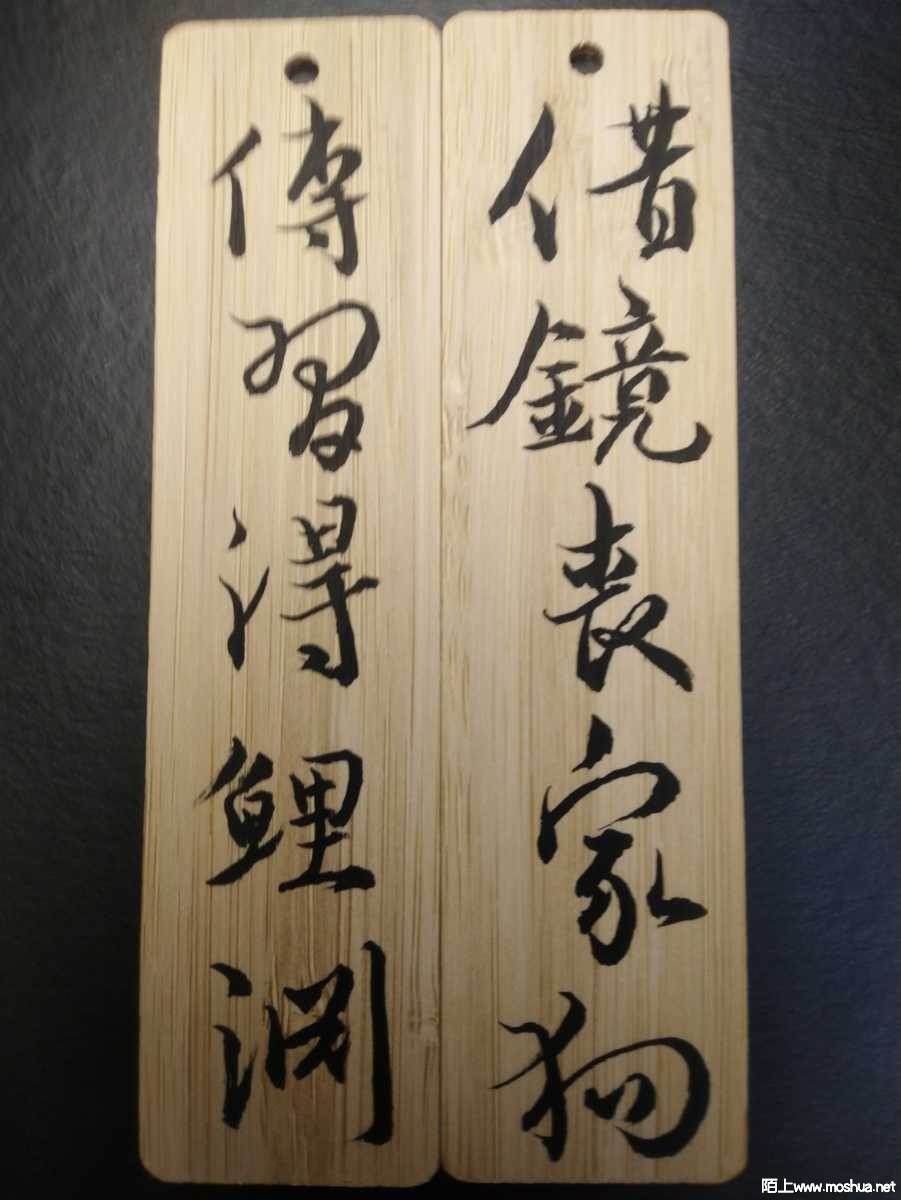 借鏡喪家狗
傳習得鯉渊
陌上www.moshua.net